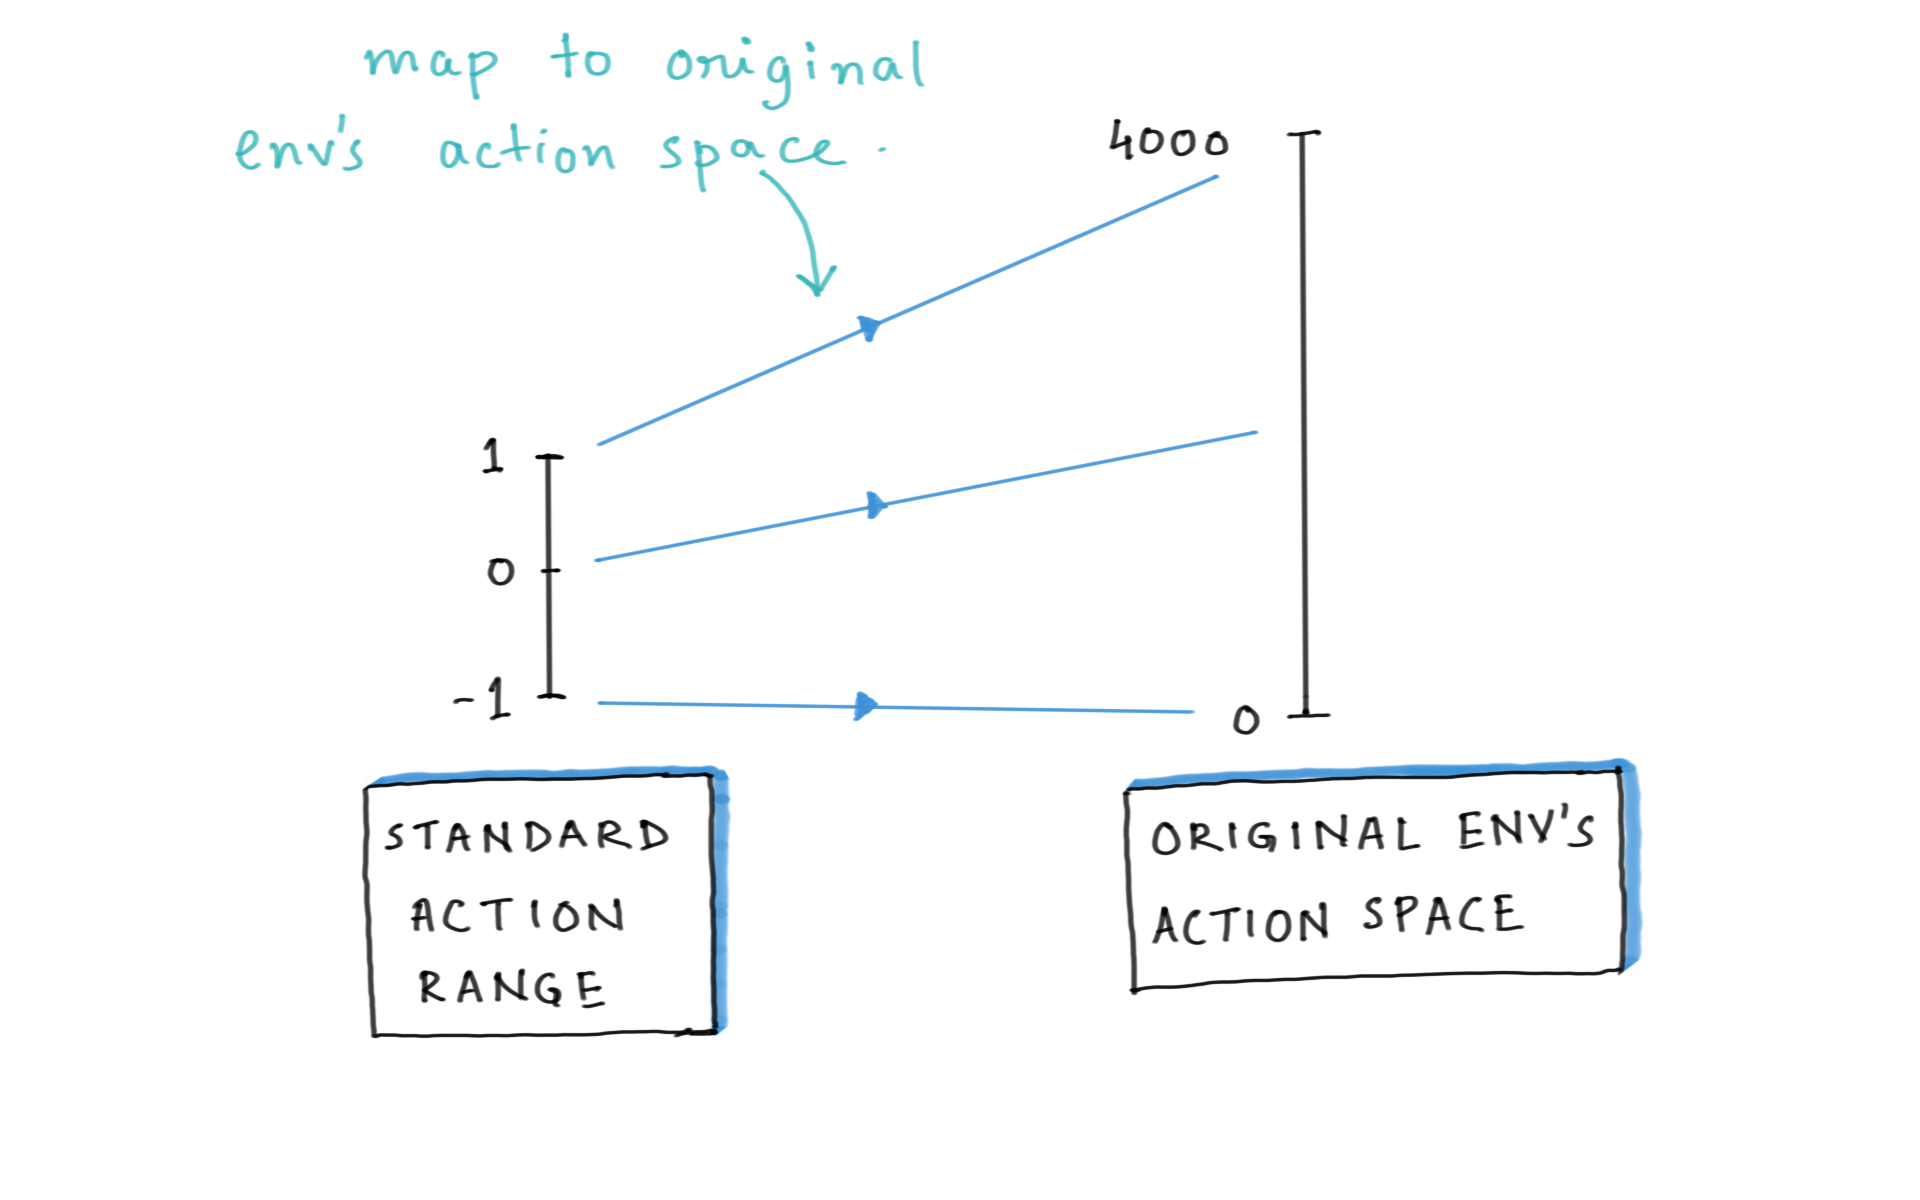 map to original
env's action space.
4000
1
0
-1
0
STANDARD
ACTION
RANGE
ORIGINAL ENV'S
ACTION SPACE